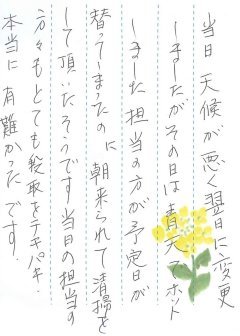 当日天候が悪く翌日に変更
しましたがその日は青天でホット
しました担当の方が予定日が
替ってしまったのに朝来られて清掃を
して頂いたそうです当日の担当の
方々もとても段取をテキパキ
本当に有難かったです.